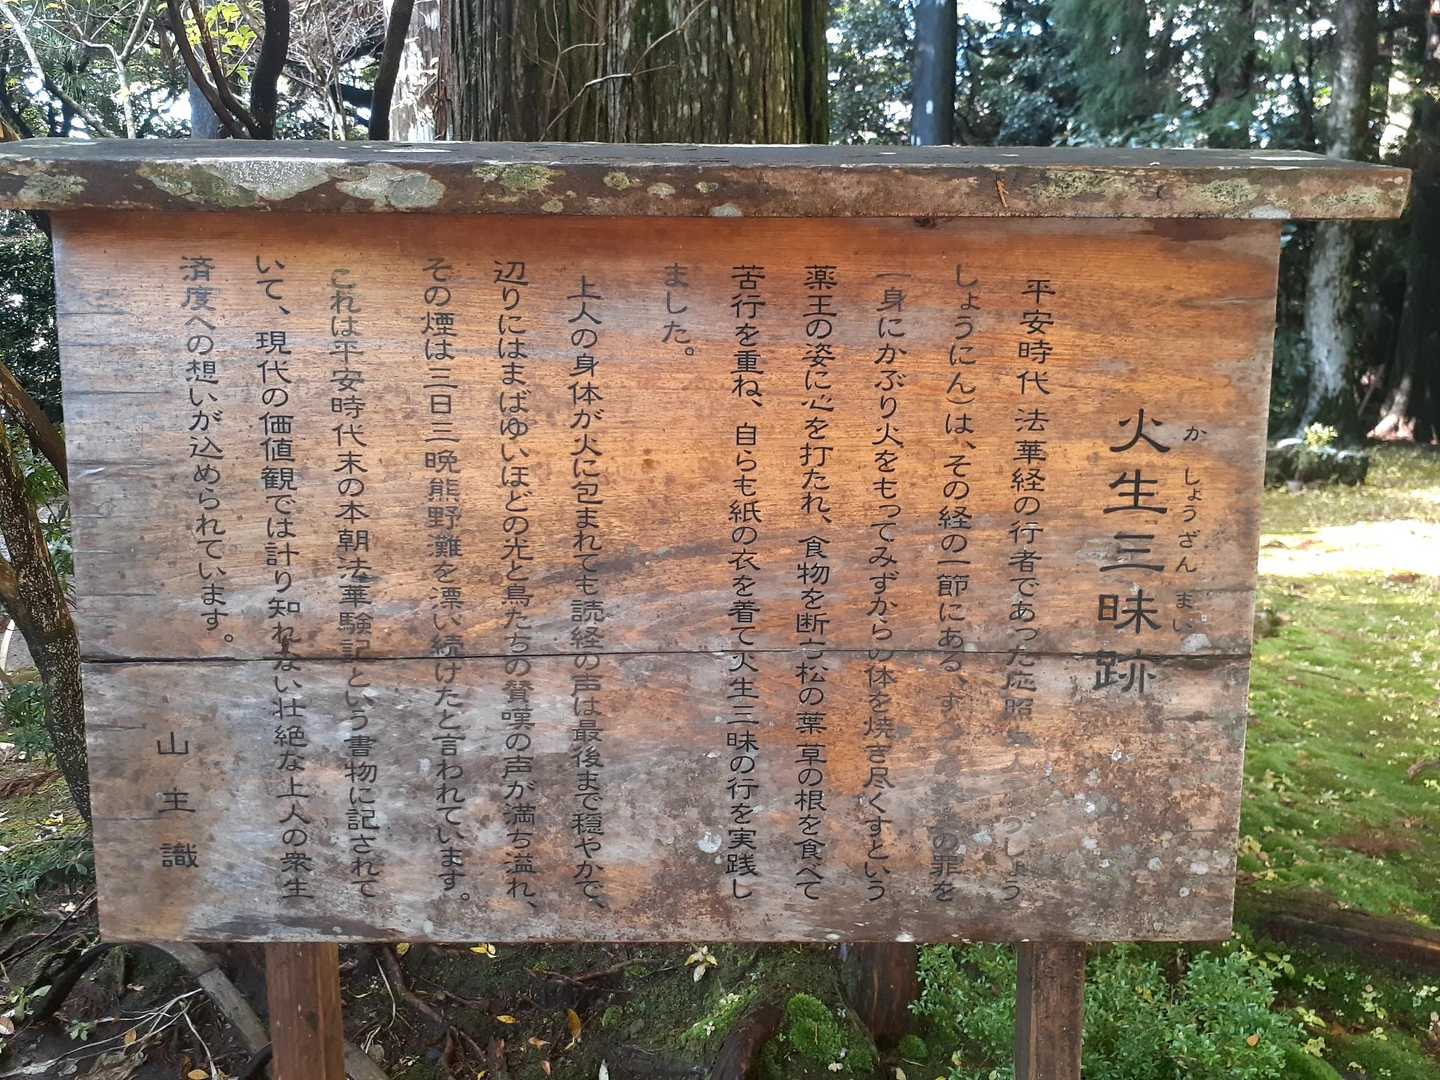 火生三昧跡
か しょうざん まい
平安時代 法華経の行者であった応照
しょうにん)は、その経の一節にある、
の罪を
一身にかぶり火をもってみずからの体を焼き尽くすという
薬王の姿に心を打たれ、食物を断ち松の葉草の根を食べて
苦行を重ね、自らも紙の衣を着て火生三昧の行を実践し
ました。
上人の身体が火に包まれても読経の声は最後まで穏やかで、
辺りにはまばゆいほどの光と鳥たちの賛嘆の声が満ち溢れ、
その煙は三日三晩熊野灘を漂い続けたと言われています。
これは平安時代末の本朝法華験記という書物に記されて
いて、現代の価値観では計り知れない壮絶な上人の衆生
済度への想いが込められています。
山主識